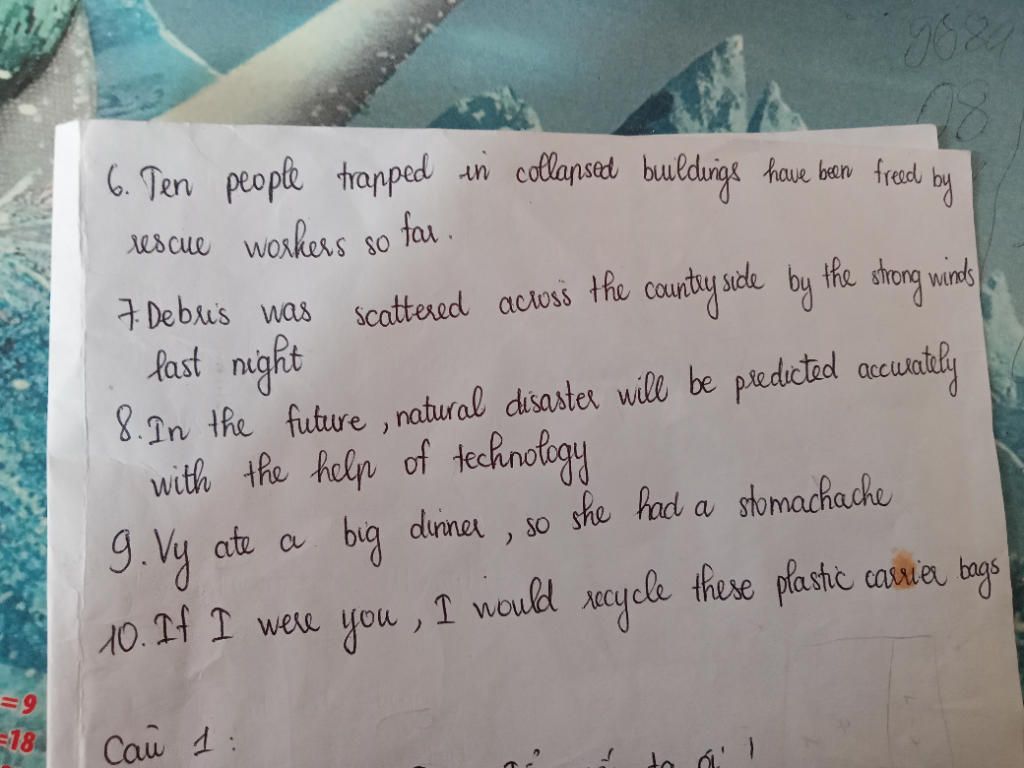 9684
08
6. Ten people trapped in collapsed buildings have been freed by
rescue workers so far.
7. Debris was scattered across the countryside by the strong winds
last night
8. In the future, natural disaster will be predicted accurately
with the help of technology
9. Vy ate a big dinner, so she had a stomachache
10. If I were you, I would recycle these plastic carrier bags
=9
=18
Câu 1: